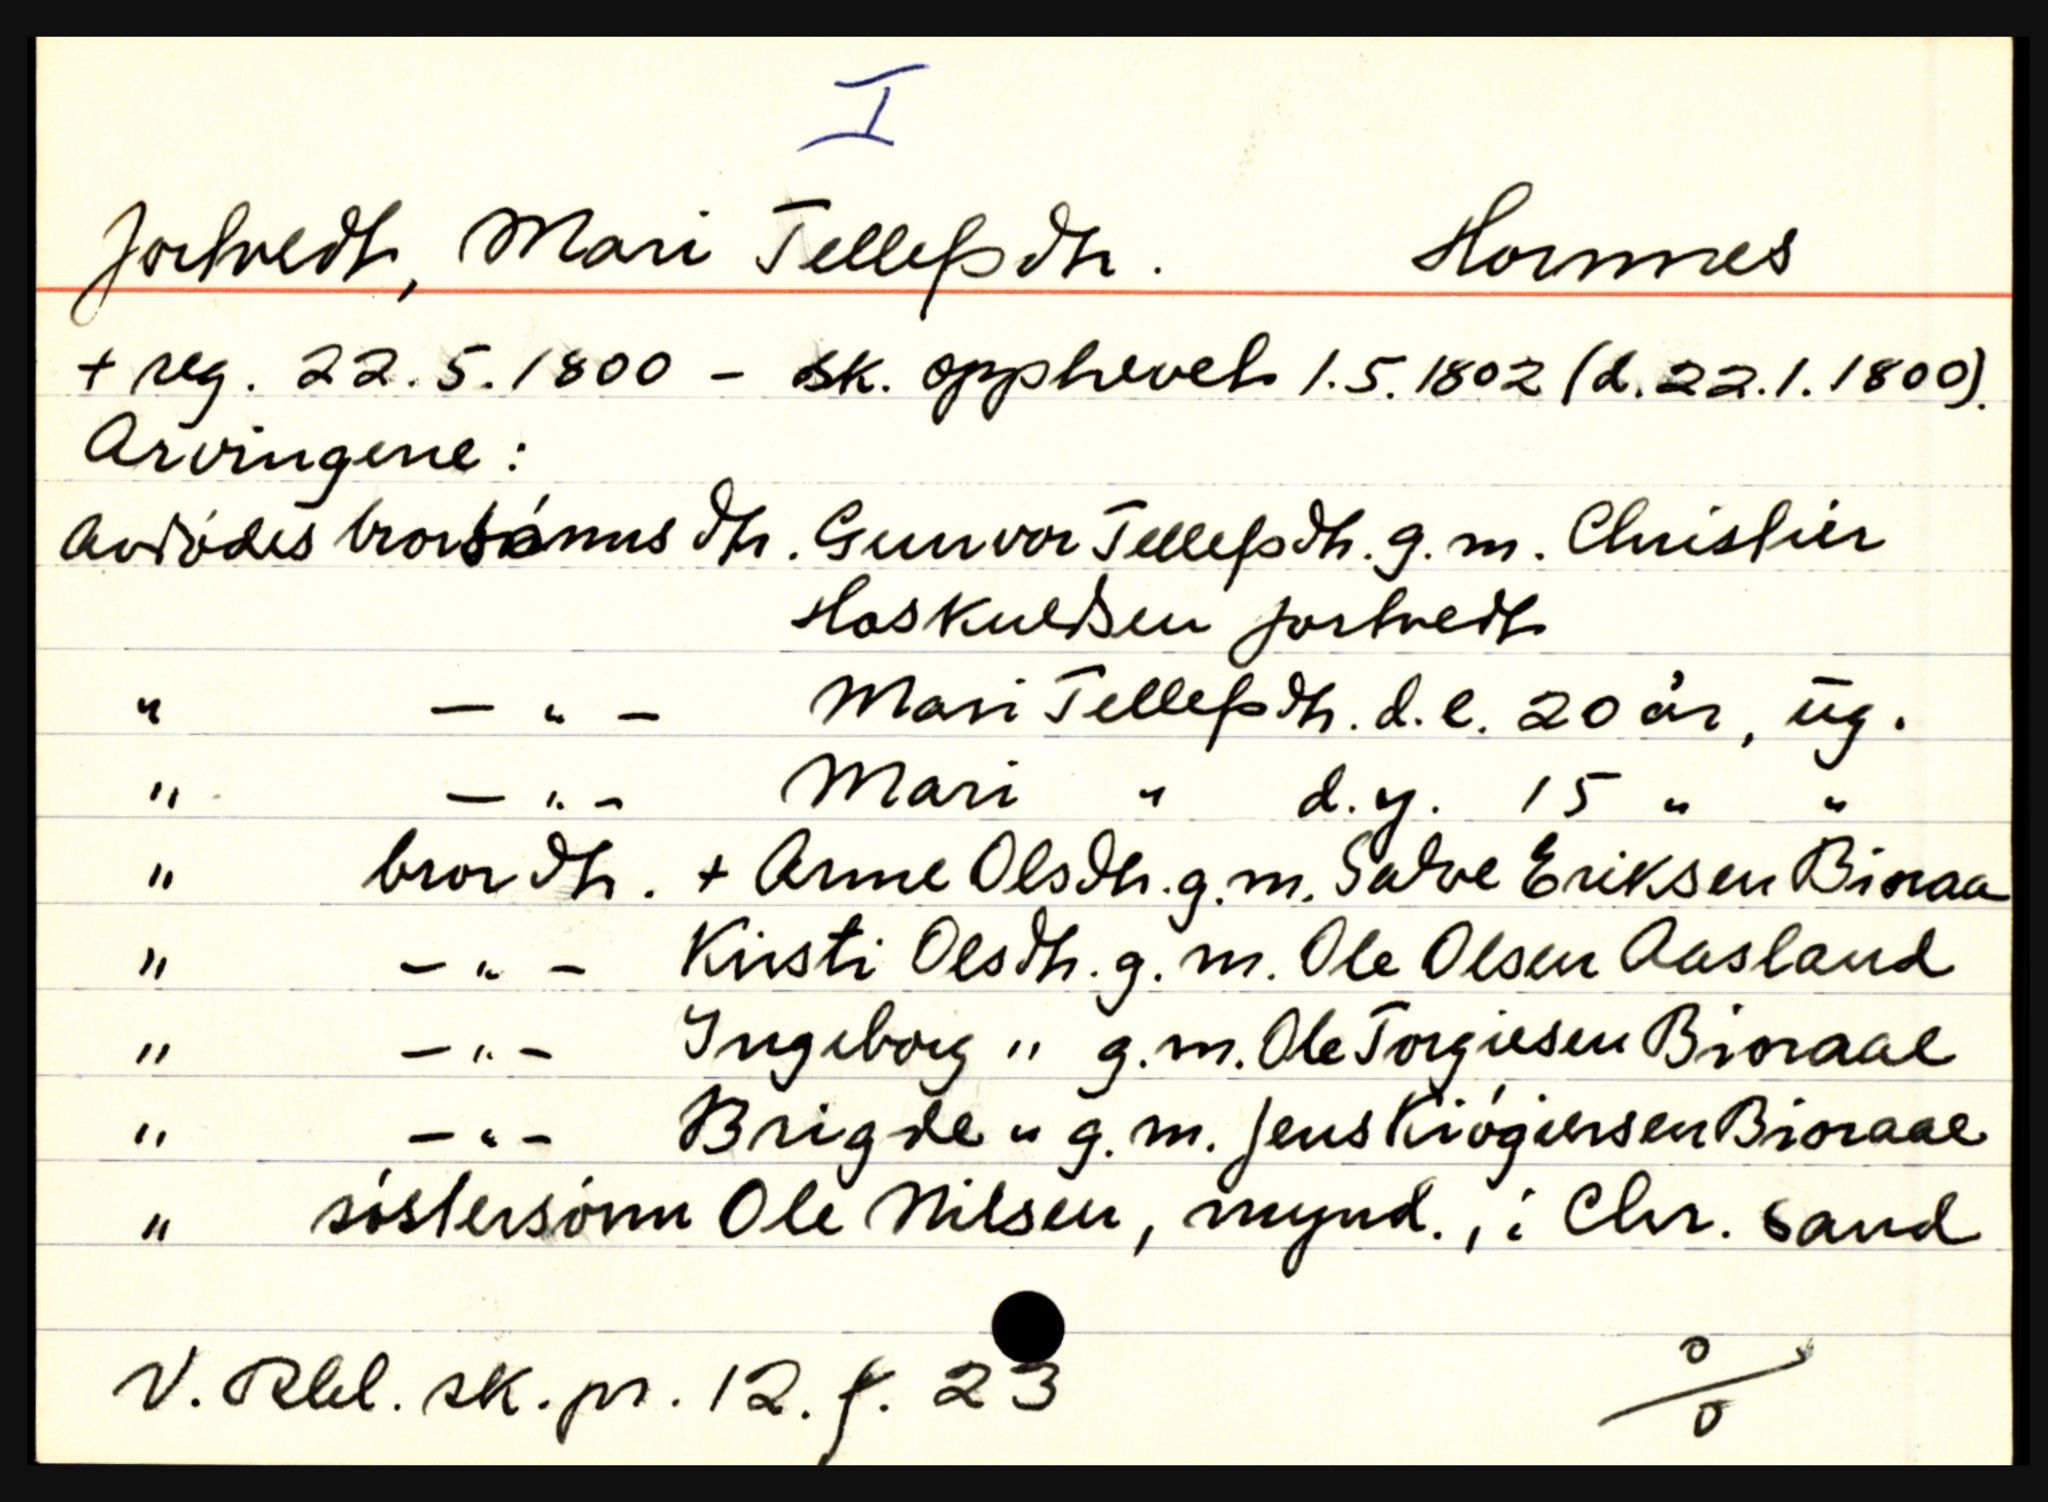 I
Jortvedt, Mari Tellefsdtr. Hornnes
+ reg. 22.5.1800 - sk. opphevet 1.5.1802 (d. 22.1.1800).
Arvingene:
Avdødes brorsønns dtr. Gunvor Tellefsdtr. g.m. Christier
Hoskuldsen Jortvedt
" - " - Mari Tellefsdtr. d.e. 20 år, ūg.
" - " - Mari " d.y. 15 " "
" bror dtr. + Anne Olsdtr. g.m. Salve Eriksen Bioraa
" - " - Kirsti Olsdtr. g.m. Ole Olsen Aasland
" - " - Ingeborg " g.m. Ole Torgiesen Bioraae
" - " - Brigde " g.m. Jens Kiøgiersen Bioraae
" søstersønn Ole Nilsen, mynd., i Chr. sand
V. Rbl. sk. pr. 12. f. 23
0/0